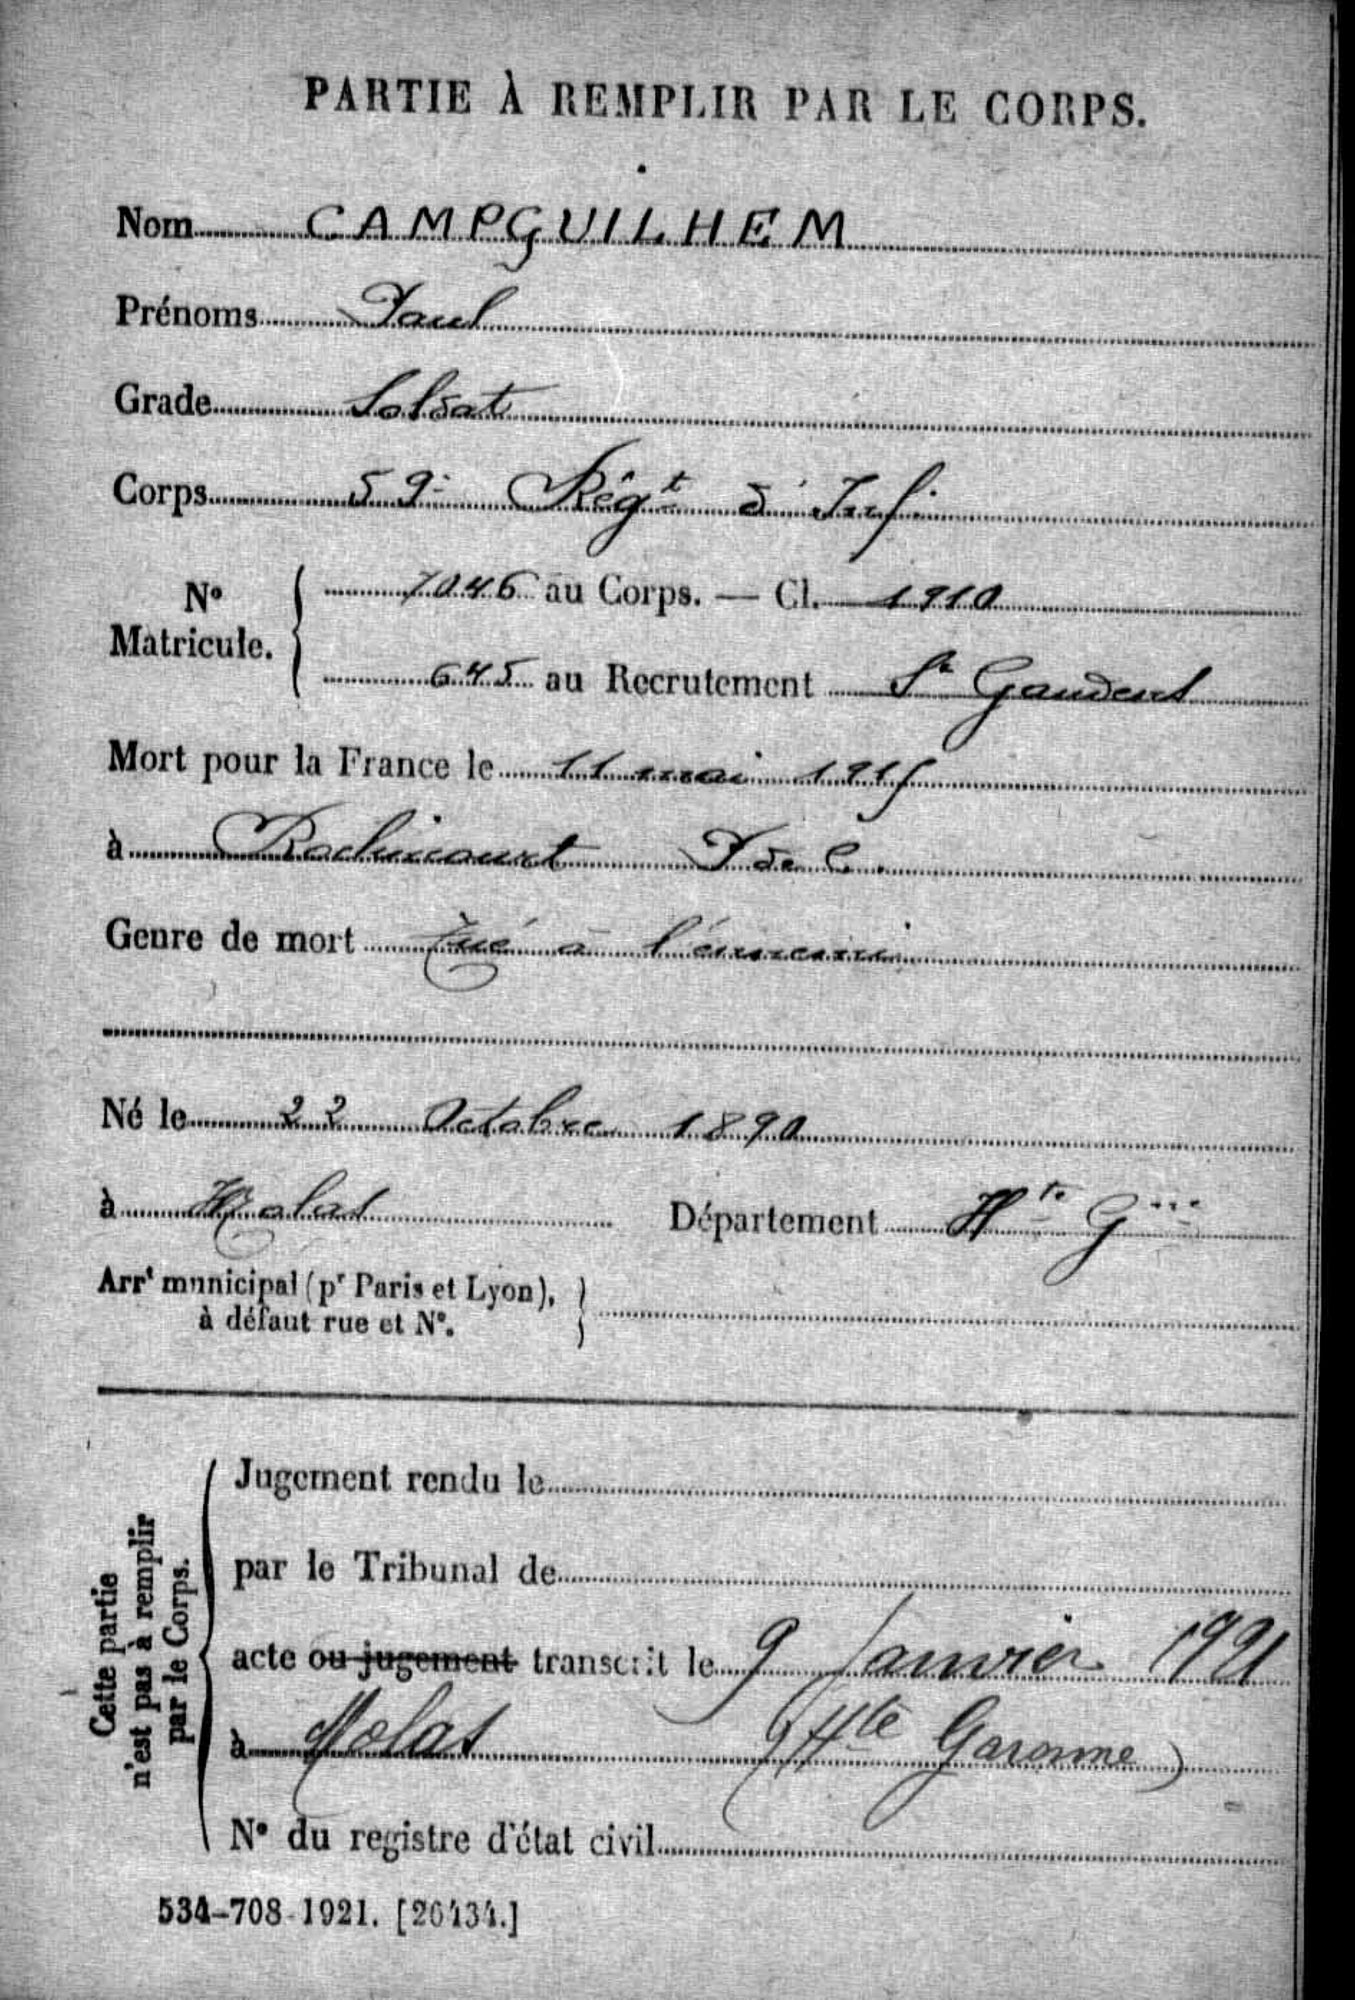 PARTIE À REMPLIR PAR LE CORPS.
Nom CAMPGUILHEM
Prénoms Paul
Grade Soldat
Corps 59e Régt d'Inf.
No Matricule. 7046 au Corps. — Cl. 1910
645 au Recrutement St Gaudens
Mort pour la France le 11 mai 1915
à Roclincourt P de C.
Genre de mort Tué à l'ennemi
Né le 22 Octobre 1890
à Molas Département Hte G
Arrt municipal (pr Paris et Lyon),
à défaut rue et No.
Cette partie
n'est pas à remplir
par le Corps.
Jugement rendu le
par le Tribunal de
acte ou jugement transcrit le 9 Janvier 1921
à Molas (Hte Garonne)
No du registre d'état civil
534-708-1921. [26434.]